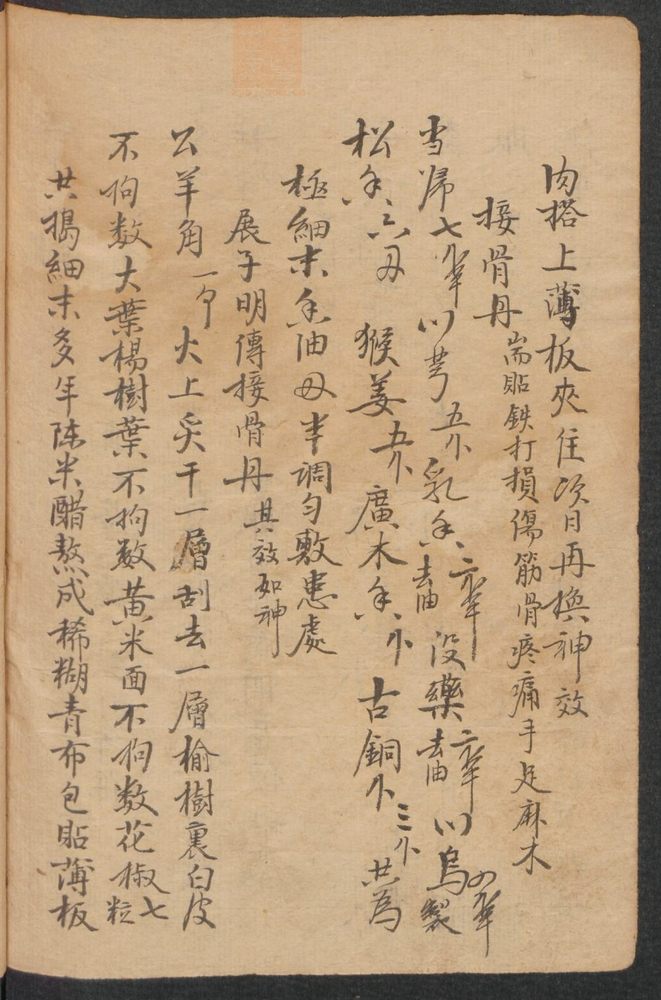 肉搭上薄板夾住次日再換神效
接骨丹 耑貼鉄打損傷筋骨疼痛手足麻木
当歸七半 川芎五卜 乳香六半去油 没藥六半去油 川烏四半製
松香六 猴姜五卜 廣木香卜 古銅卜三卜 共為
極細末香油 半調勻敷患處
展子明傳接骨丹 其效如神
公羊角一个 火上炙干一層刮去一層榆樹裏白皮
不拘数大葉楊樹葉不拘数黄米面不拘数花椒七粒
共搗細末多年陈米醋熬成稀糊青布包貼薄板